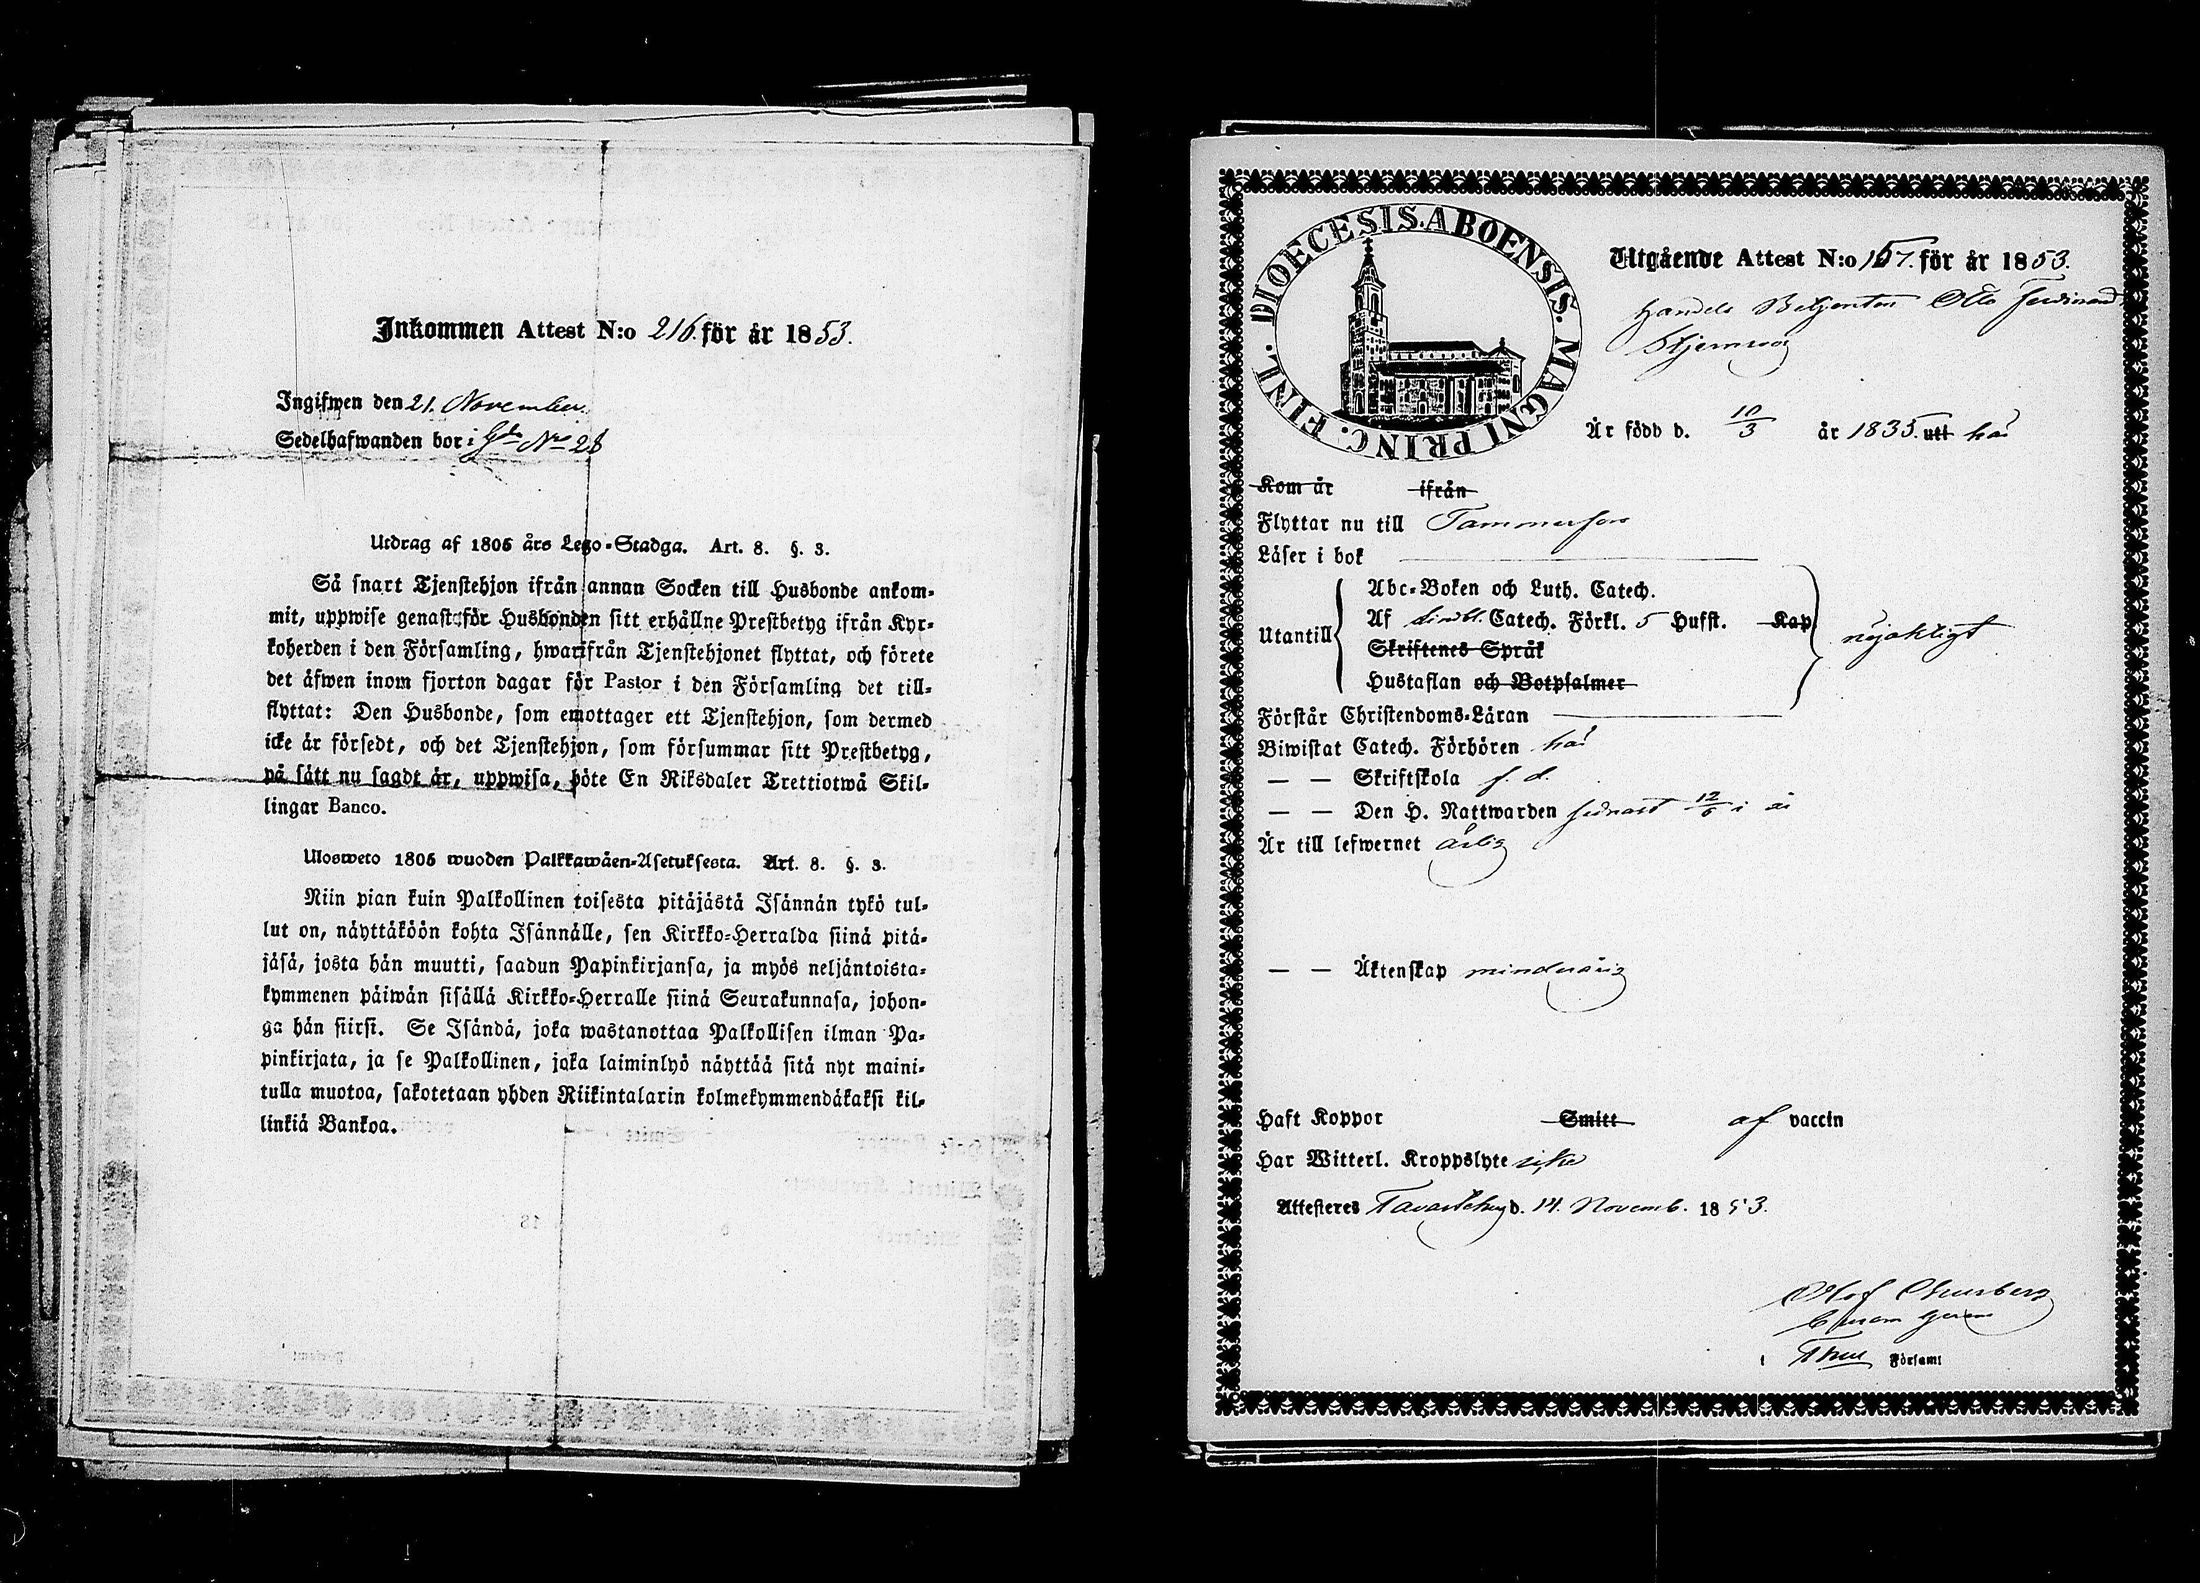 Inkommen Attest N:o 216. för år 1853.
Ingifwen den 21. November.
Sedelhafwanden bor i Gdn No 28
Utdrag af 1805 års Lego-Stadga. Art. 8. §. 3.
Så snart Tjenstehjon ifrån annan Socken till Husbonde ankom-
mit, uppwise genast för Husbonden sitt erhållne Prestbetyg ifrån Kyr-
koherden i den Församling, hwarifrån Tjenstehjonet flyttat, och förete
det äfwen inom fjorton dagar för Pastor i den Församling det till-
flyttat: Den Husbonde, som emottager ett Tjenstehjon, som dermed
icke är försedt, och det Tjenstehjon, som försummar sitt Prestbetyg,
på sätt nu sagdt är, uppwisa, böte En Riksdaler Trettiotwå Skil-
lingar Banco.
Ulosweto 1805 wuoden Palkkawäen-Asetuksesta. Art. 8. §. 3.
Niin pian kuin Palkollinen toisesta pitäjästä Isännän tykö tul-
lut on, näyttäköön kohta Isännälle, sen Kirkko-Herralda siinä pitä-
jäsä, josta hän muutti, saadun Papinkirjansa, ja myös neljäntoista-
kymmenen päiwän sisällä Kirkko-Herralle siinä Seurakunnasa, johon-
ga hän siirsi. Se Isändä, joka wastanottaa Palkollisen ilman Pa-
pinkirjata, ja se Palkollinen, joka laiminlyö näyttää sitä nyt maini-
tulla muotoa, sakotetaan yhden Riikintalarin kolmekymmendäkaksi kil-
linkiä Bankoa.
DIOECESIS. ABOENSIS. MAGNI PRINC. FINL.
Utgående Attest N:o 157. för år 1853.
Handels Betjenten Otto Ferdinand
Är född d. 10/3 år 1835. utt här
Kom år ifrån
Flyttar nu till Tammerfors
Läser i bok
Utantill
Abc-Boken och Luth. Catech.
Af Lindbl. Catech. Förkl. 5 Hufst. Kap.
Skriftenes Språk
Hustaflan och Botpsalmer
nöjaktigt
Förstår Christendoms-Läran
Biwistat Catech. Förhören här
— — Skriftskola f. d.
— — Den H. Nattwarden sednast 12/6 i år
Är till lefwernet ärlig
— — Äktenskap minderårig
Haft Koppor Smitt af vaccin
Har Witterl. Kroppslyte icke
Attesteres Tavastehus d. 14. Novemb. 1853.
Olof
i Församl